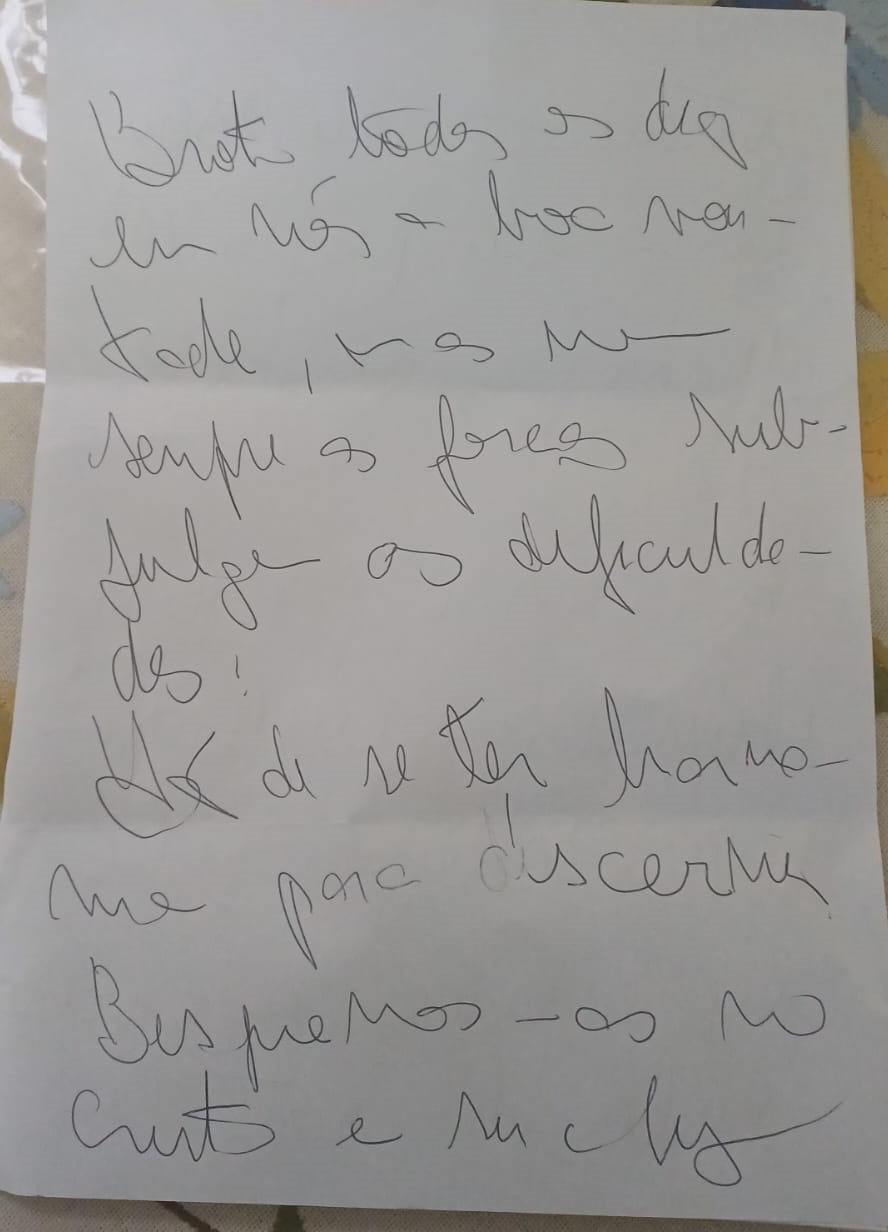 Brota todos os dias
em nós a boa von-
tade, mas nem
sempre as forças sub-
julgam as dificulda-
des!
Há de se ter harmo-
nia para discernir
Busquemos-as no
Cristo e sua